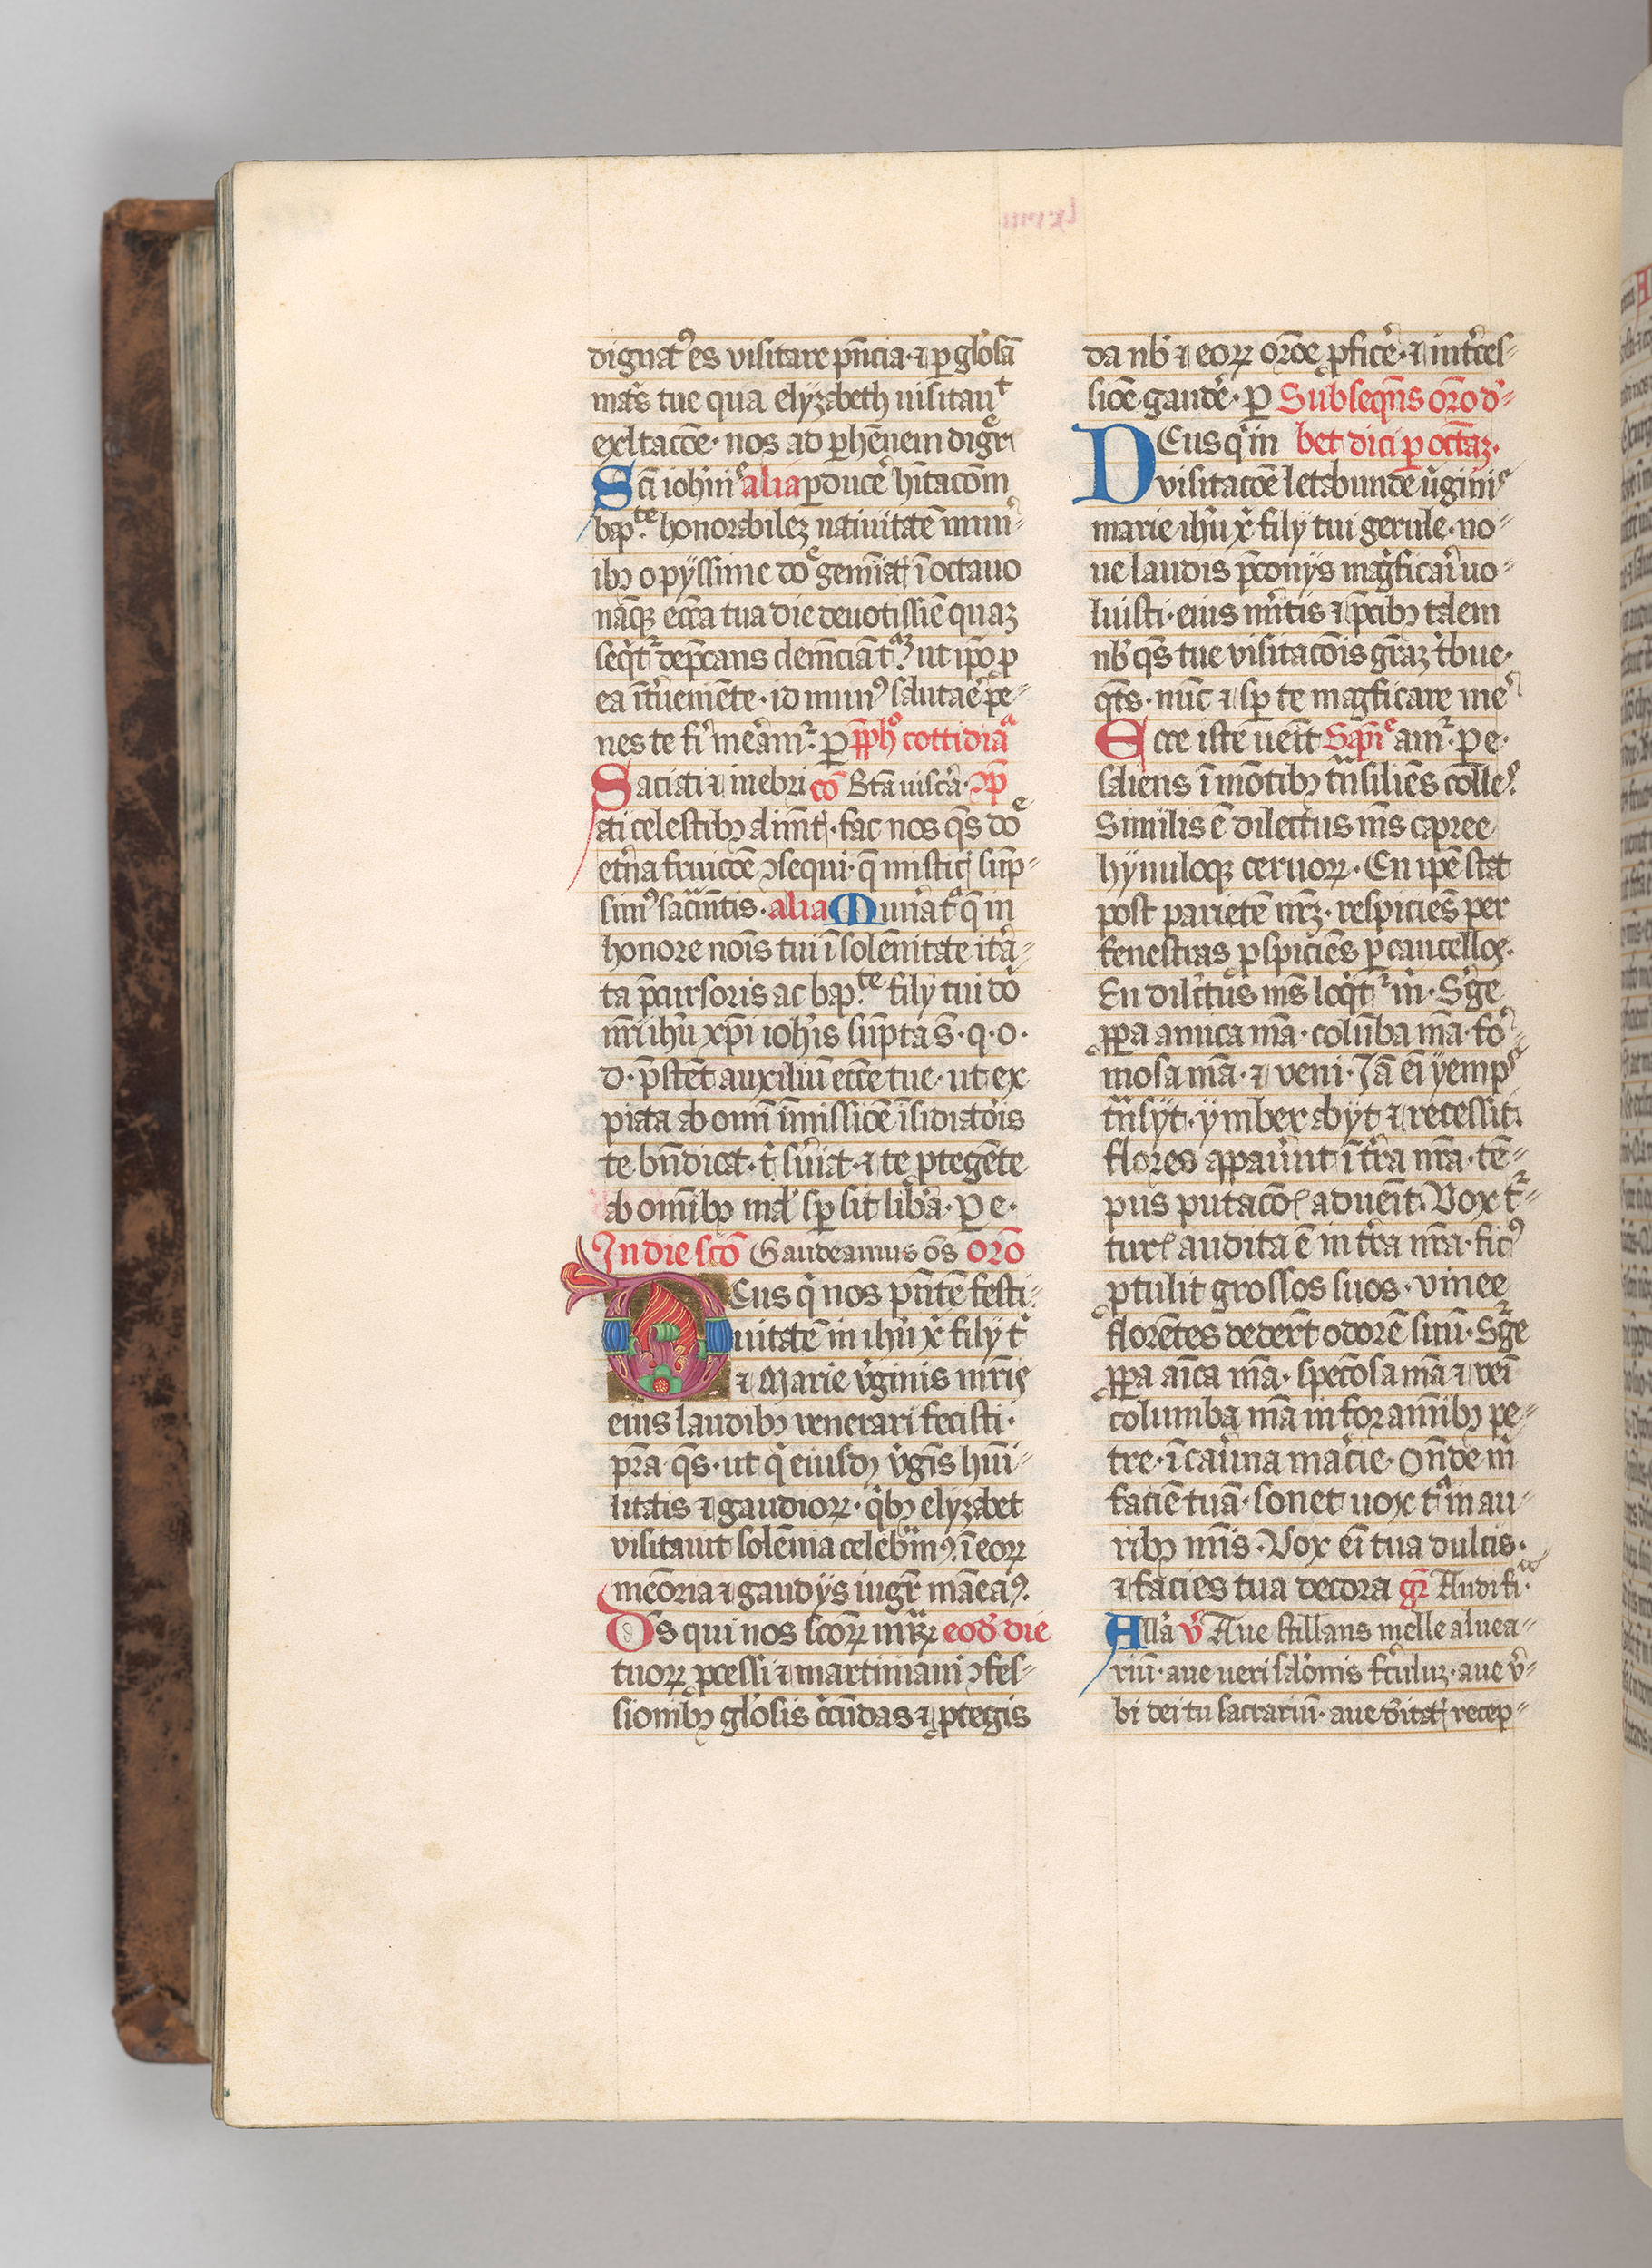 dignat⁹ es visitare pn̄cia · ⁊ ꝑ glo̓sā
mat̓s tue qua elyzabeth uisitauᵗ
exl̓tacōe · nos ad ꝑhēnem digͤr
Sc̄i ioh̓mͤ alia ꝑducē hītacōm
bap̓ᵗᵉ honorabileꝫ natiuitatē mun̓-
ibꝫ o pyssime doͤ gem̄iat̓ ī octauo
nāqꝫ ecc̄a tua die deuotissīe quaꝫ
seq̓t̓ dep̄cans
ea īt̓ueniēte · id mun⁹ salutaē̓ pe-
nes te fi̓ me̓am̓ · ꝑ p̄ph̊ cottidiaᵃ
Saciati ⁊ inebri cō Stā uisc̓a · 
ati celestibꝫ alim̄t̓ · fac nos q̄s doͤ
et̓na fruicōe ꝯsequi · q̄ mistic̓ sūp-
sim⁹ sac̓m̄tis · alia Muna̓t̓ q̄ in
honore nōīs tui ī solēnitate it̓a-
ta p̄cursoris ac bap̓ᵗᵉ fily tui do̓
nr̄i ih̓u xp̄i ioh̓is sūpta s̄ · q · o ·
d · p̄stēt auxiliū ecc̄e tue · ut ex
piata ab om̄i īmissiōe īsidiato̓is
te bn̄dicat · t̓ su̓iat · ⁊ te ꝓtegēte
ab om̄ibꝫ mal̓ sꝑ sit lib̓a · ꝑ e ·
In die sc̄o Gaudeamus ōs orō
Eus q̓ nos pn̄tē festi-
uitatē in ih̓u x̓ fily t̓
⁊ Marie v̓ginis mr̄is
eius laudibꝫ venerari fecisti ·
pr̄a q̄s · ut q̓ eiusdꝫ v̓gīs hūi-
litatis ⁊ gaudioꝝ · q̓bꝫ elyzabet
visitauit solēnia celebͣm⁹ · ī eoꝝ
meōria ⁊ gaudys iugr̓ māea⁹ ·
Ds qui nos sc̄oꝝ mr̄ꝝ eod̓ die
tuoꝝ ꝓcessi ⁊ martiniani ꝯfes-
sionibꝫ glo̓sis c̓cūdas ⁊ ꝓtegis
da nb̓ ⁊ eoꝝ orōe ꝓfice̓ · ⁊ int̓ces-
siōe gaude̓ · ꝑ Subseqn̄s orō d̓-
DEus q̓ in bet dici ꝑ octaꝫ ·
visitacōe letabunde u̓ginis
marie ih̓u x̓ fily tui gerule · no-
ue laudis p̄conys mag̓ficari̓ uo-
luisti · eius mr̄itis ⁊ p̄cibꝫ talem
nb̓ q̄s tue visitacōis gr̄aꝫ t̓bue ·
qt̄s · nūc ⁊ sꝑ te mag̓ficare me̓
Ecce iste ueīt Sapīͤ am̓ · ꝑ e ·
saliens ī mōtibꝫ tͣnsiliēs colle⁹ ·
Similis ē dilectus m̄s capree
hynuloqꝫ ceruoꝝ · En ip̄e stat
post parietē nr̄ꝫ · respiciēs per
fenestras ꝓspiciēs ꝑ cancellos ·
En dil̓ctus m̄s loq̓t̓ m̓ · Sg̓e
ꝓꝑa amica m̄a · colūba m̄a · fo̓
mosa m̄a · ⁊ veni · Jā ei̅ yemps
tͣnsyt · ymber abyt ⁊ recessit ·
flores appaue̓nt ī t̓ra nr̄a · tē-
pus putacōis aduēit · Vox t̓-
turis audita ē in t̓ra nr̄a · fic⁹
ꝓtulit grossos suos · vinee
florētes dedert̄ odorē suū · Sg̓e
ꝓꝑa aīca m̄a · specōsa m̄a ⁊ veī
columba m̄a in foraminibꝫ pe-
tre · ī cau̓na mac̓ie · On̄de m̓
faciē tuā · sonet uox tͣ in au-
ribꝫ m̄is · Vox ei̅ tua dulcis ·
⁊ facies tua decora gr̄ Audi fiᵃ ·
All̓a v̓ Aue stillans melle aluea-
riū · aue ueri salōnis fc̓uluꝫ · aue v̓-
bi dei tu sacrariū · aue d̓itat̓ recep-